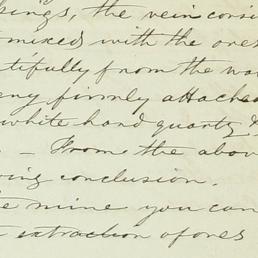 the vein consi
mixed with the ores
tifully from the wa
eny firmly attached
white hard quartz &
— From the abov
ving conclusion.
e mine you can
extraction of ores